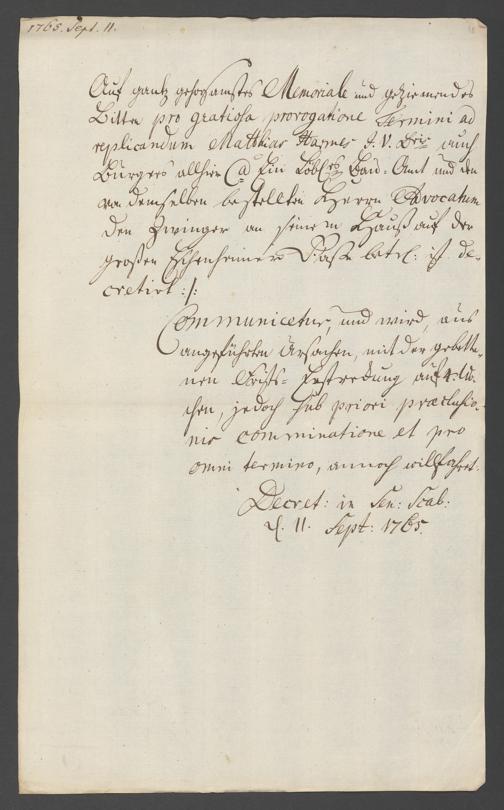 1765. Sept. 11.
Auf gantz gehorsamstes Memoriale und geziemendes
Bitten pro gratiosa prorogatione Termini ad
replicandum Matthias Harmes J. V. Dris auch
Burgers allhier Ca Ein Löbl. Bau-Amt und den
von demselben bestellten Herrn Advocatum
den Zwinger an seinem Hauß auf der
großen Eschenheimer Gaße betr: ist de-
cretirt :/:
Communicetur, und wird, aus
angeführten Ursachen, mit der gebette-
nen Frist-Erstreckung auf 4 Wo-
chen, jedoch sub priori praeclusio-
nis comminatione et pro
omni termino, annoch willfahret.
Decret: in Sen: Scab:
d. 11. Sept: 1765.